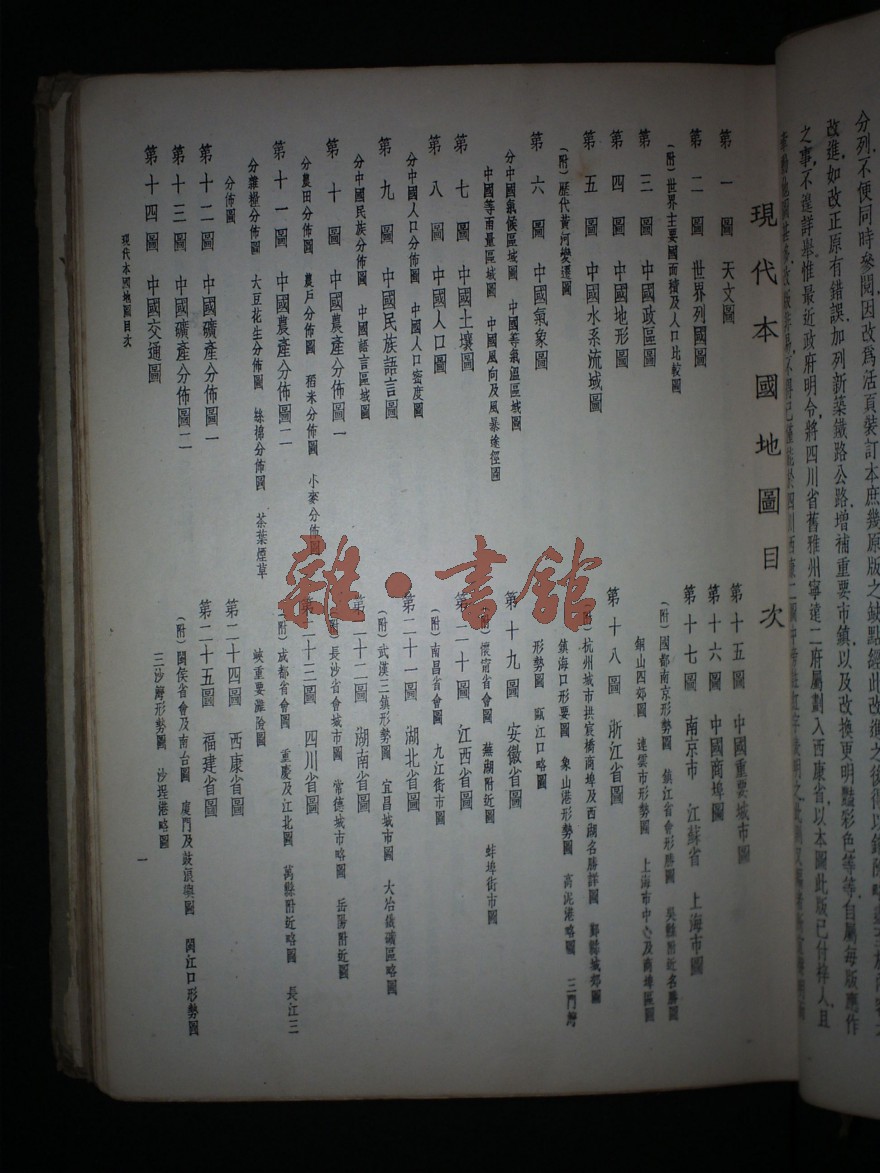 分列不便同時參閱因改爲活頁裝訂本庶幾原版之缺點經此改進之後得以
改進如改正原有錯誤加列新築鐵路公路增補重要市鎮以及改換更明豔彩色等等自屬每版應作
之事不遑詳舉惟最近政府明令將四川省舊雅州寧遠二府屬劃入西康省以本圖此版已付梓人且
現代本國地圖目次
第一圖 天文圖
第二圖 世界列國圖
(附)世界主要國面積及人口比較圖
第三圖 中國政區圖
第四圖 中國地形圖
第五圖 中國水系流域圖
(附)歷代黃河變遷圖
第六圖 中國氣象圖
分中國氣候區域圖 中國等氣溫區域圖
中國等雨量區域圖 中國風向及風暴途徑圖
第七圖 中國土壤圖
第八圖 中國人口圖
分中國人口分佈圖 中國人口密度圖
第九圖 中國民族語言圖
分中國民族分佈圖 中國語言區域圖
第十圖 中國農產分佈圖一
分農田分佈圖 農戶分佈圖 稻米分佈圖 小麥分佈圖
第十一圖 中國農產分佈圖二
分雜糧分佈圖 大豆花生分佈圖 絲棉分佈圖 茶葉煙草
分佈圖
第十二圖 中國礦產分佈圖一
第十三圖 中國礦產分佈圖二
第十四圖 中國交通圖
第十五圖 中國重要城市圖
第十六圖 中國商埠圖
第十七圖 南京市 江蘇省 上海市圖
(附)國都南京形勢圖 鎮江省會形勝圖 吳縣附近名勝圖
銅山四郊圖 連雲市形勢圖 上海市中心及商埠區圖
第十八圖 浙江省圖
(附)杭州城市拱宸橋商埠及西湖名勝詳圖 鄞縣城郊圖
鎮海口形要圖 象山港形勢圖 高泥港略圖 三門灣
形勢圖 甌江口略圖
第十九圖 安徽省圖
(附)懷甯省會圖 蕪湖附近圖 蚌埠街市圖
第二十圖 江西省圖
(附)南昌省會圖 九江街市圖
第二十一圖 湖北省圖
(附)武漢三鎮形勢圖 宜昌城市圖 大冶鐵礦區略圖
第二十二圖 湖南省圖
(附)長沙省會城市圖 常德城市略圖 岳陽附近圖
第二十三圖 四川省圖
(附)成都省會圖 重慶及江北圖 萬縣附近略圖 長江三
峽重要灘險圖
第二十四圖 西康省圖
第二十五圖 福建省圖
(附)閩侯省會及南台圖 廈門及鼓浪嶼圖 閩江口形勢圖
三沙灣形勢圖 沙埕港略圖
現代本國地圖目次
一
雜·書館